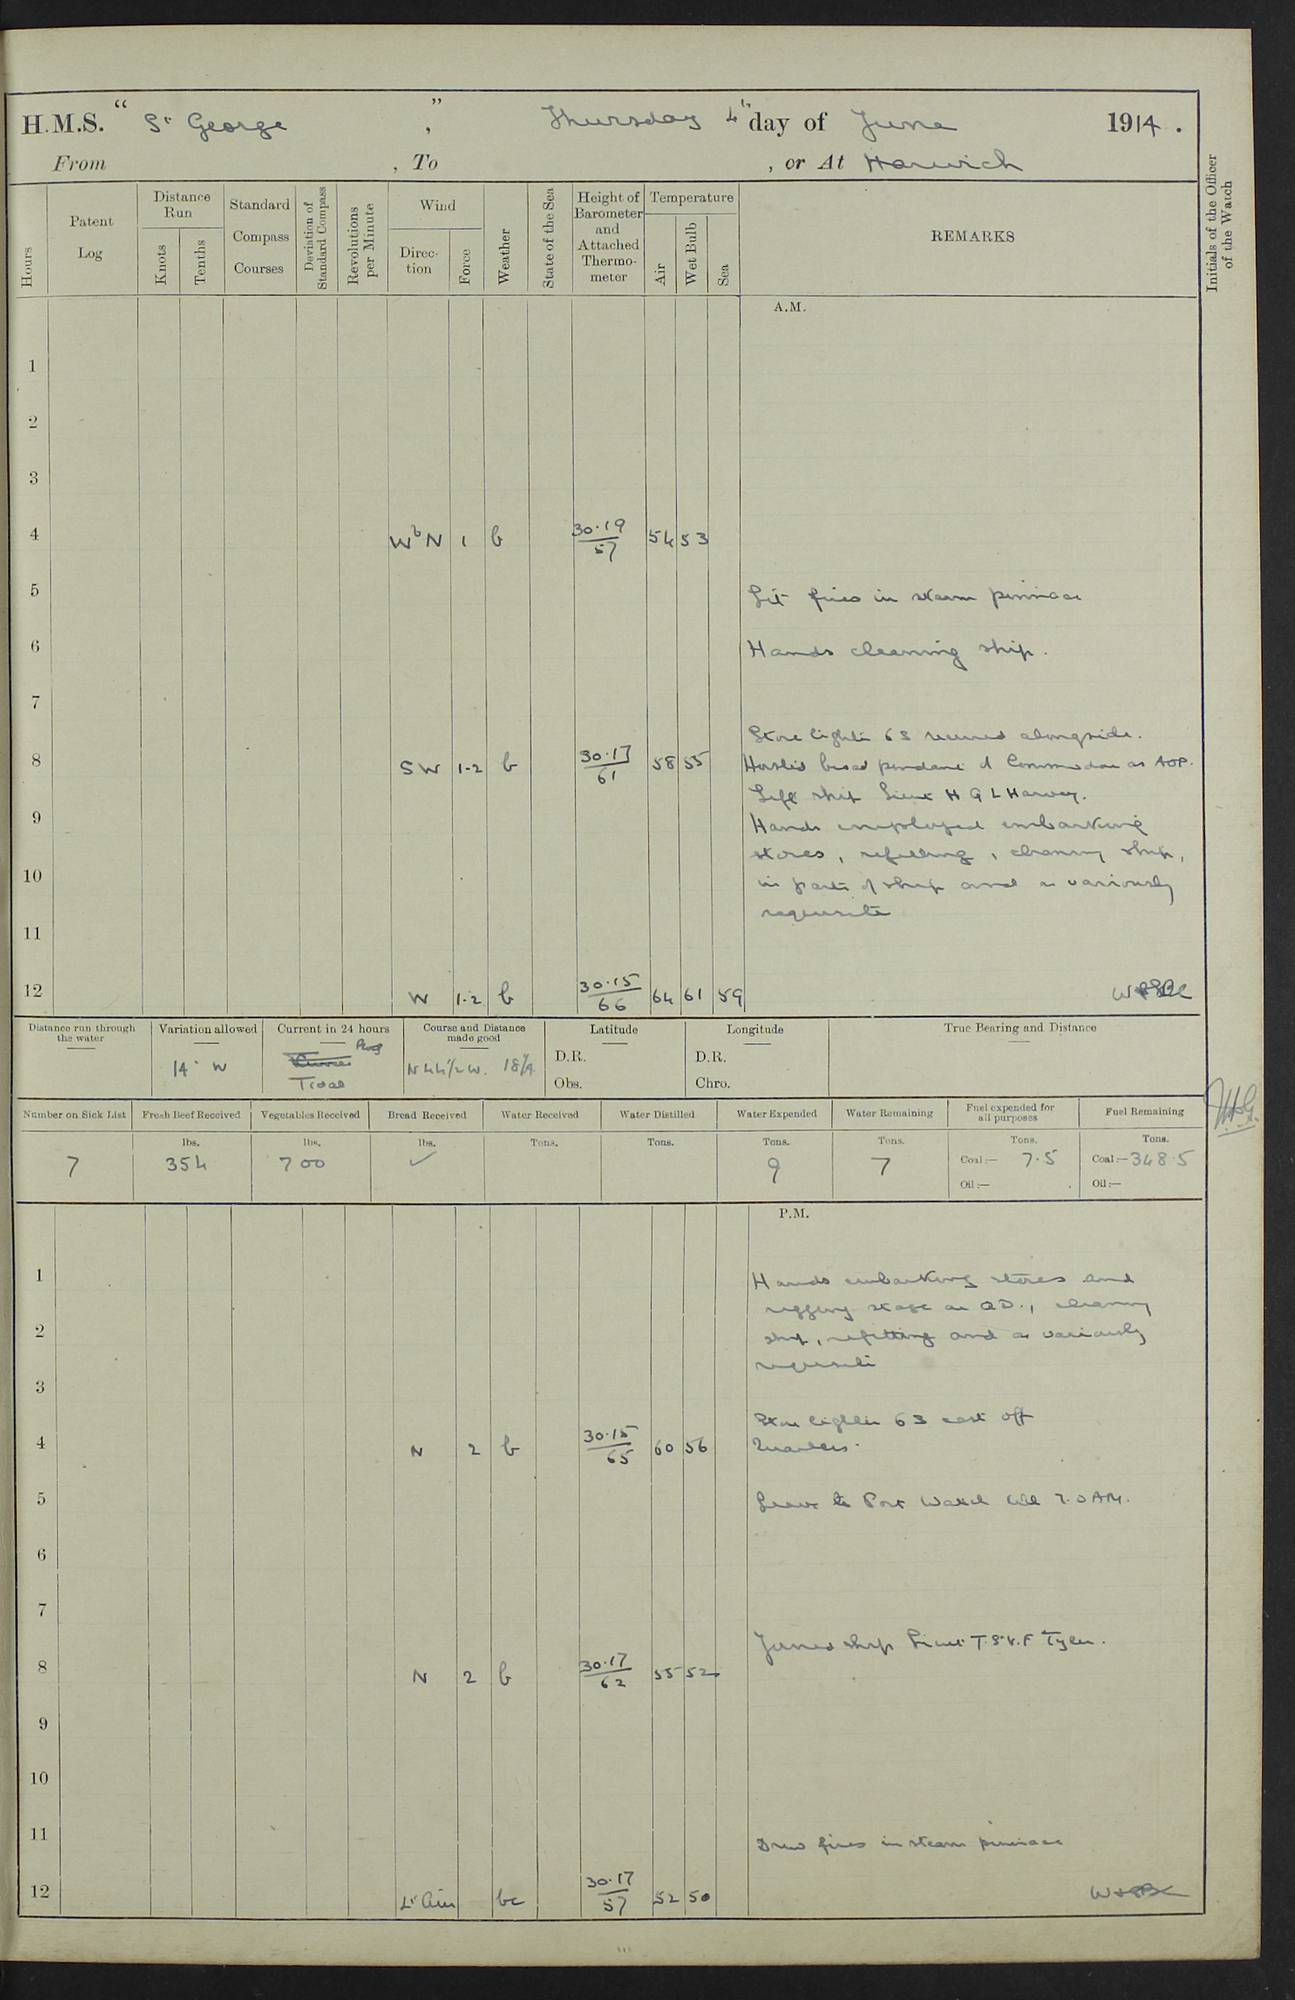 H.M.S. "St George", Thursday 4th day of June 1914.
From , To , or At Harwich
Hours
Patent Log
Distance Run
Knots
Tenths
Standard Compass Courses
Deviation of Standard Compass
Revolutions per Minute
Wind
Direction
Force
Weather
State of the Sea
Height of Barometer and Attached Thermometer
Temperature
Air
Wet Bulb
Sea
REMARKS
Initials of the Officer of the Watch
A.M.
1
2
3
4 WbN 1 b 30.19/57 54 53
5 Lit fires in steam pinnace
6 Hands cleaning ship.
7
Store lighter 63 secured alongside.
8 SW 1-2 b 30.17/61 58 55 Hoisted broad pendant of Commodore as
Left ship Lieut H G L Harvey.
9 Hands employed embarking
stores, refitting, cleaning ship,
10 in parts of ship and as variously
requisite
11
12 W 1-2 b 30.15/66 64 61 59
Distance run through the water
Variation allowed
14° W
Current in 24 hours
Tidal
Course and Distance made good
N 44½ W. 18¼
Latitude
D.R.
Obs.
Longitude
D.R.
Chro.
True Bearing and Distance
Number on Sick List
7
Fresh Beef Received
lbs.
354
Vegetables Received
lbs.
700
Bread Received
lbs.
✓
Water Received
Tons.
Water Distilled
Tons.
Water Expended
Tons.
9
Water Remaining
Tons.
7
Fuel expended for all purposes
Tons.
Coal:— 7.5
Oil:—
Fuel Remaining
Tons.
Coal:— 348.5
Oil:—
P.M.
1 Hands embarking stores and
rigging stage on QD., cleaning
2 ship, refitting and as variously
requisite
3
Store lighter 63 cast off
4 N 2 b 30.15/65 60 56 Quarters.
5 Leave to Port Watch till 7.0 AM.
6
7
Joined ship Lieut T.S.V.F Tyler.
8 N 2 b 30.17/62 55 52
9
10
11 Drew fires in steam pinnace
12 Lt Airs bc 30.17/57 52 50